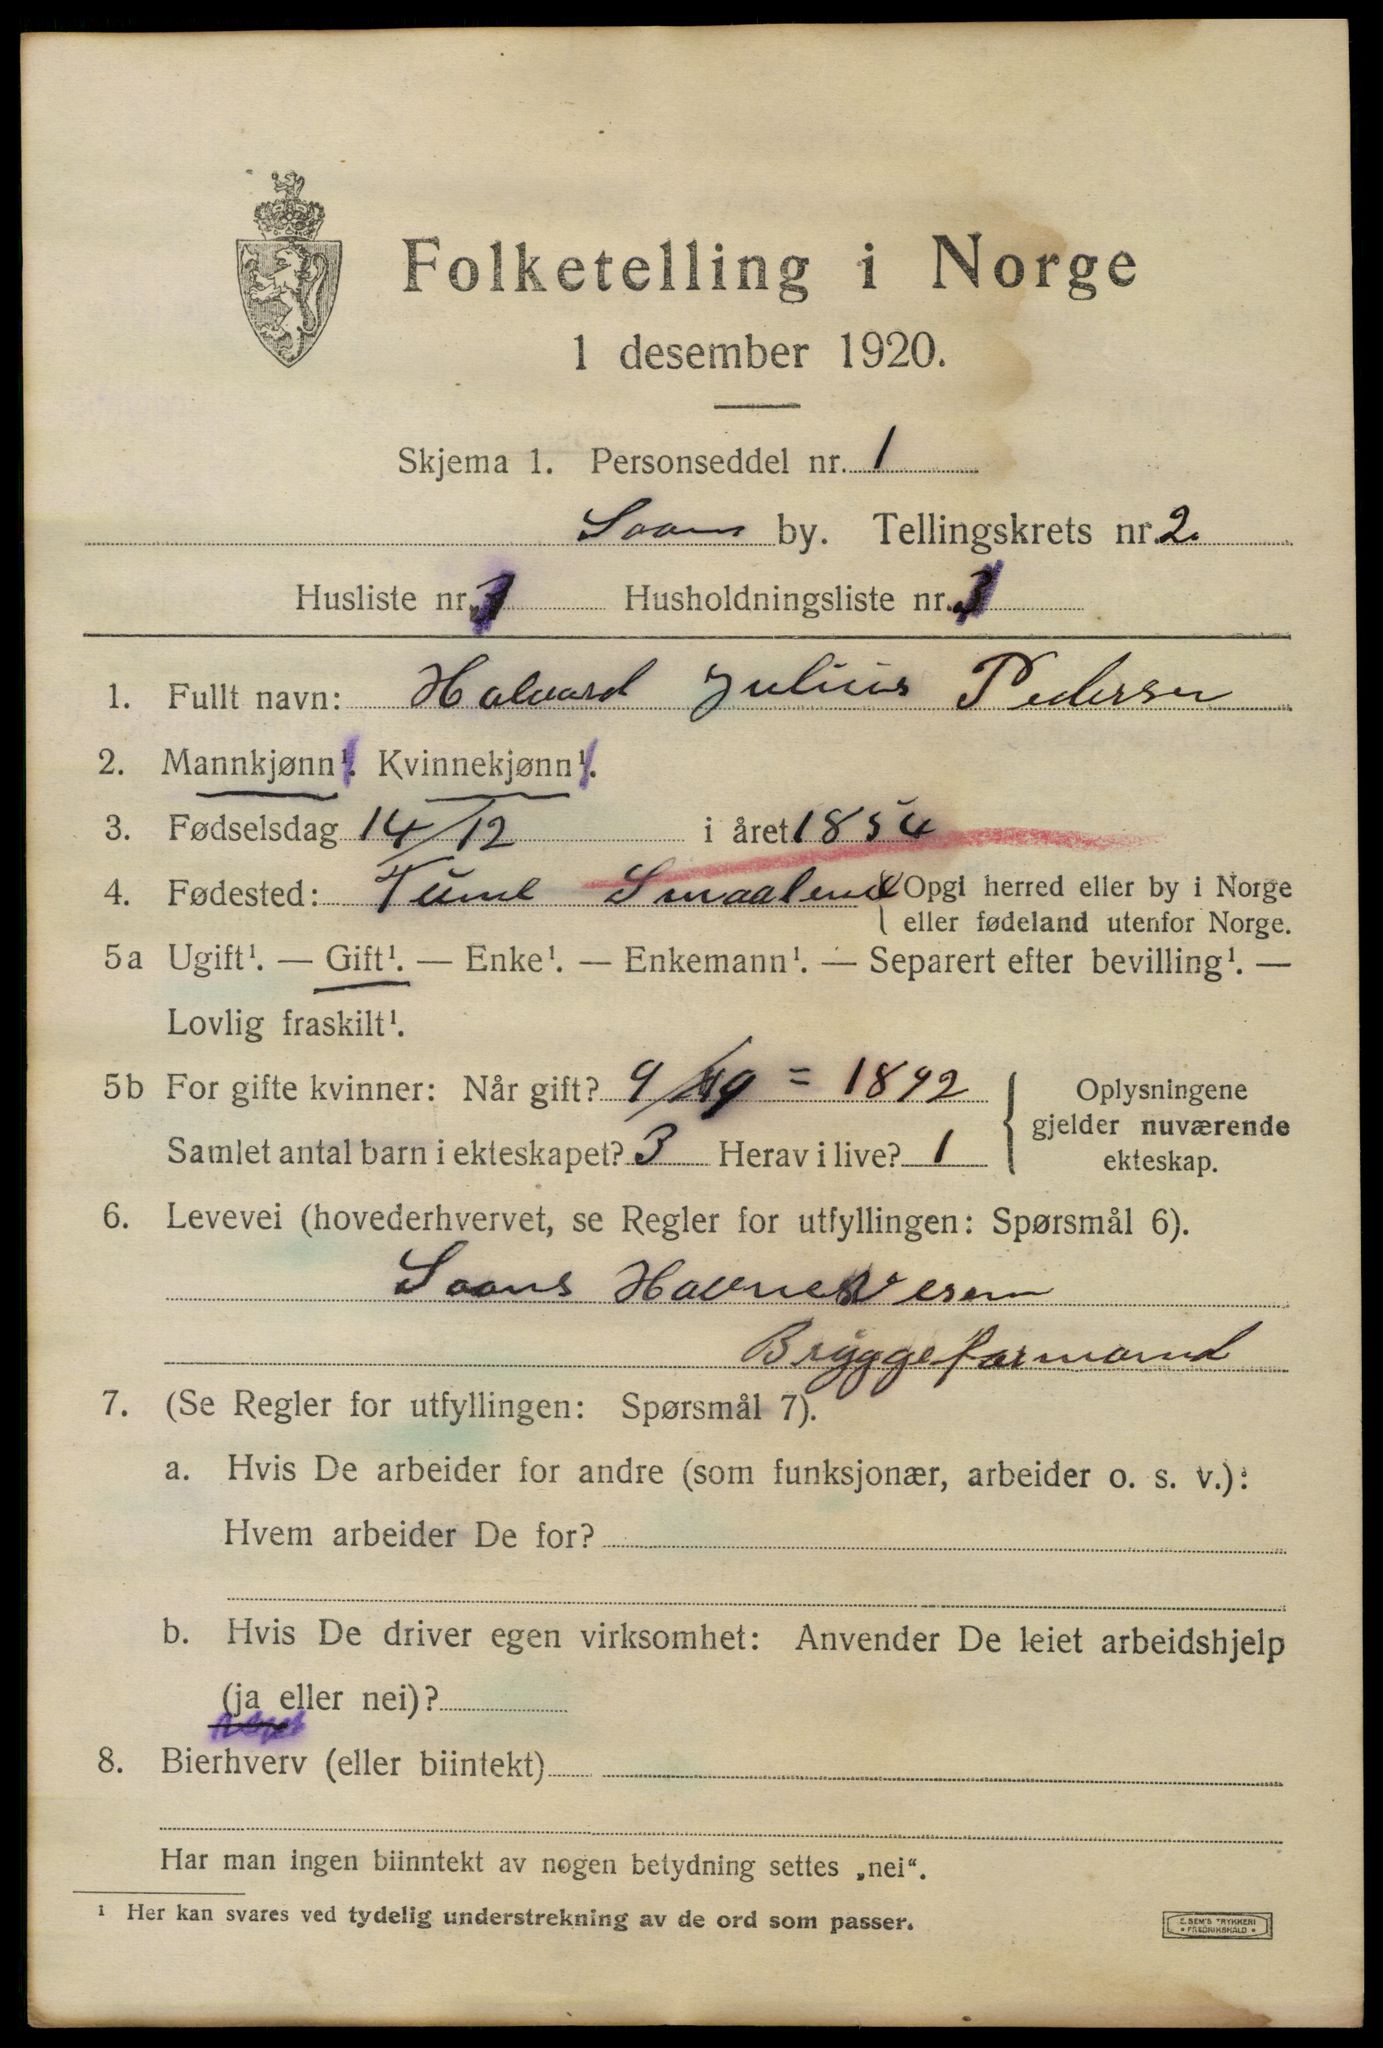 Folketelling i Norge
1 desember 1920.
Skjema 1. Personseddel nr. 1
Soon by. Tellingskrets nr. 2.
Husliste nr. Husholdningsliste nr.
1. Fullt navn: Halvard Julius Pedersen
2. Mannkjønn¹. Kvinnekjønn¹.
3. Fødselsdag 14/12 i året 1854
4. Fødested: Tune Smaalene { Opgi herred eller by i Norge
eller fødeland utenfor Norge.
5a Ugift¹. — Gift¹. — Enke¹. — Enkemann¹. — Separert efter bevilling¹. —
Lovlig fraskilt¹.
5b For gifte kvinner: Når gift? 9/ = 1892 } Oplysningene
gjelder nuværende
Samlet antal barn i ekteskapet? 3 Herav i live? 1 ekteskap.
6. Levevei (hovederhvervet, se Regler for utfyllingen: Spørsmål 6).
Soons Havnevesen
Bryggeformand
7. (Se Regler for utfyllingen: Spørsmål 7).
a. Hvis De arbeider for andre (som funksjonær, arbeider o. s. v.):
Hvem arbeider De for?
b. Hvis De driver egen virksomhet: Anvender De leiet arbeidshjelp
(ja eller nei)?
8. Bierhverv (eller biintekt)
Har man ingen biinntekt av nogen betydning settes „nei“.
¹ Her kan svares ved tydelig understrekning av de ord som passer.
E. SEM'S TRYKKERI
• FREDRIKSHALD •